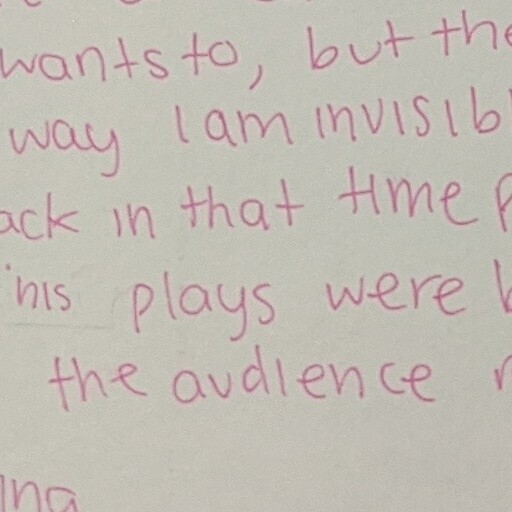 wants to, but the
way I am invisibl
ack in that time p
his plays were b
the audience
ing